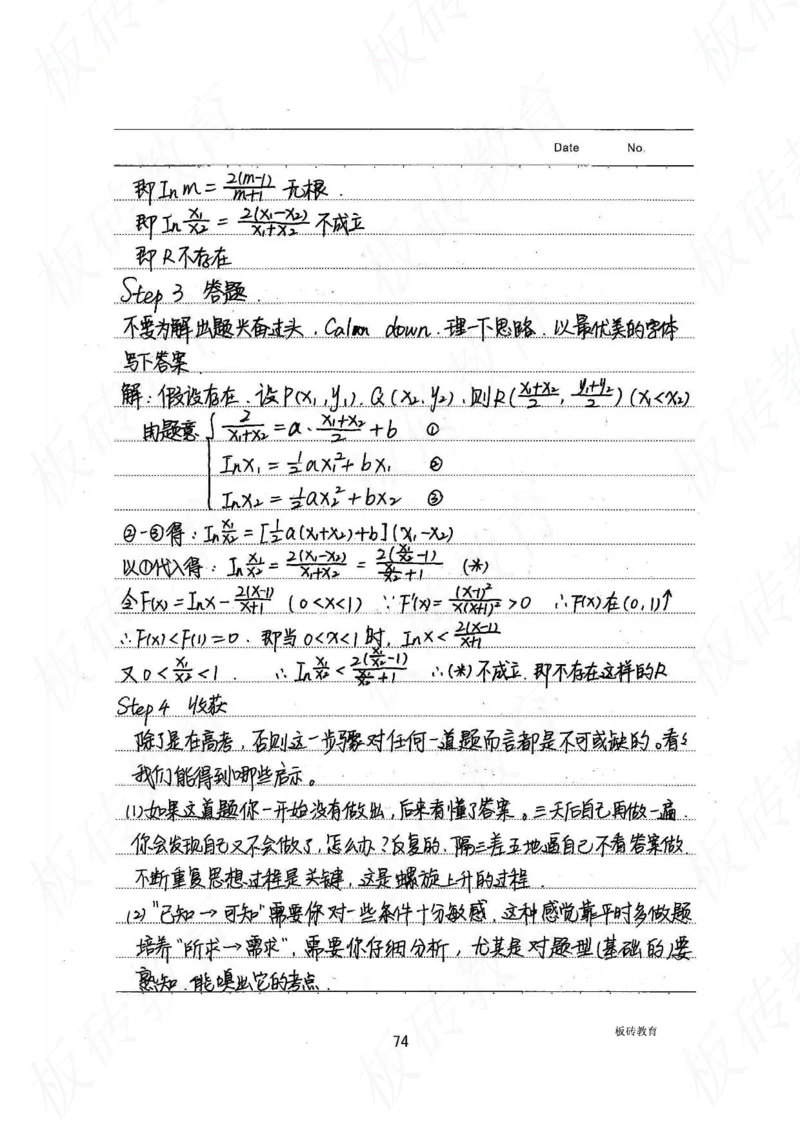 Date No.
即 ln m = 2(m-1)/(m+1) 无根.
即 ln x₁/x₂ = 2(x₁-x₂)/(x₁+x₂) 不成立
即 R 不存在
Step 3 答题.
不要为解出题兴奋过头. Calm down. 理一下思路. 以最优美的字体
写下答案.
解: 假设存在. 设 P(x₁, y₁). Q(x₂, y₂). 则 R((x₁+x₂)/2, (y₁+y₂)/2) (x₁<x₂)
由题意 { 2/(x₁+x₂) = a·(x₁+x₂)/2 + b ①
ln x₁ = ½ax₁² + bx₁ ②
ln x₂ = ½ax₂² + bx₂ ③
②-③得: ln x₁/x₂ = [½a(x₁+x₂)+b](x₁-x₂)
以①代入得: ln x₁/x₂ = 2(x₁-x₂)/(x₁+x₂) = 2(x₁/x₂-1)/(x₁/x₂+1) (*)
令 F(x) = ln x - 2(x-1)/(x+1) (0<x<1) ∵ F'(x) = (x-1)²/x(x+1)² > 0 ∴ F(x)在(0,1)↑
∴ F(x)<F(1)=0. 即当 0<x<1 时, ln x < 2(x-1)/(x+1)
又 0 < x₁/x₂ < 1. ∴ ln x₁/x₂ < 2(x₁/x₂-1)/(x₁/x₂+1) ∴ (*) 不成立. 即不存在这样的R
Step 4 收获
除了是在高考, 否则这一步骤对任何一道题而言都是不可或缺的。看
我们能得到哪些启示。
(1) 如果这道题你一开始没有做出, 后来看懂了答案。三天后自己再做一遍.
你会发现自己又不会做了, 怎么办? 反复的. 隔三差五地逼自己不看答案做.
不断重复思想过程是关键, 这是螺旋上升的过程.
(2) "已知→可知"需要你对一些条件十分敏感. 这种感觉靠平时多做题
培养"所求→需求", 需要你仔细分析, 尤其是对题型(基础的)要
熟知. 能嗅出它的考点.
74
板砖教育
板砖教育